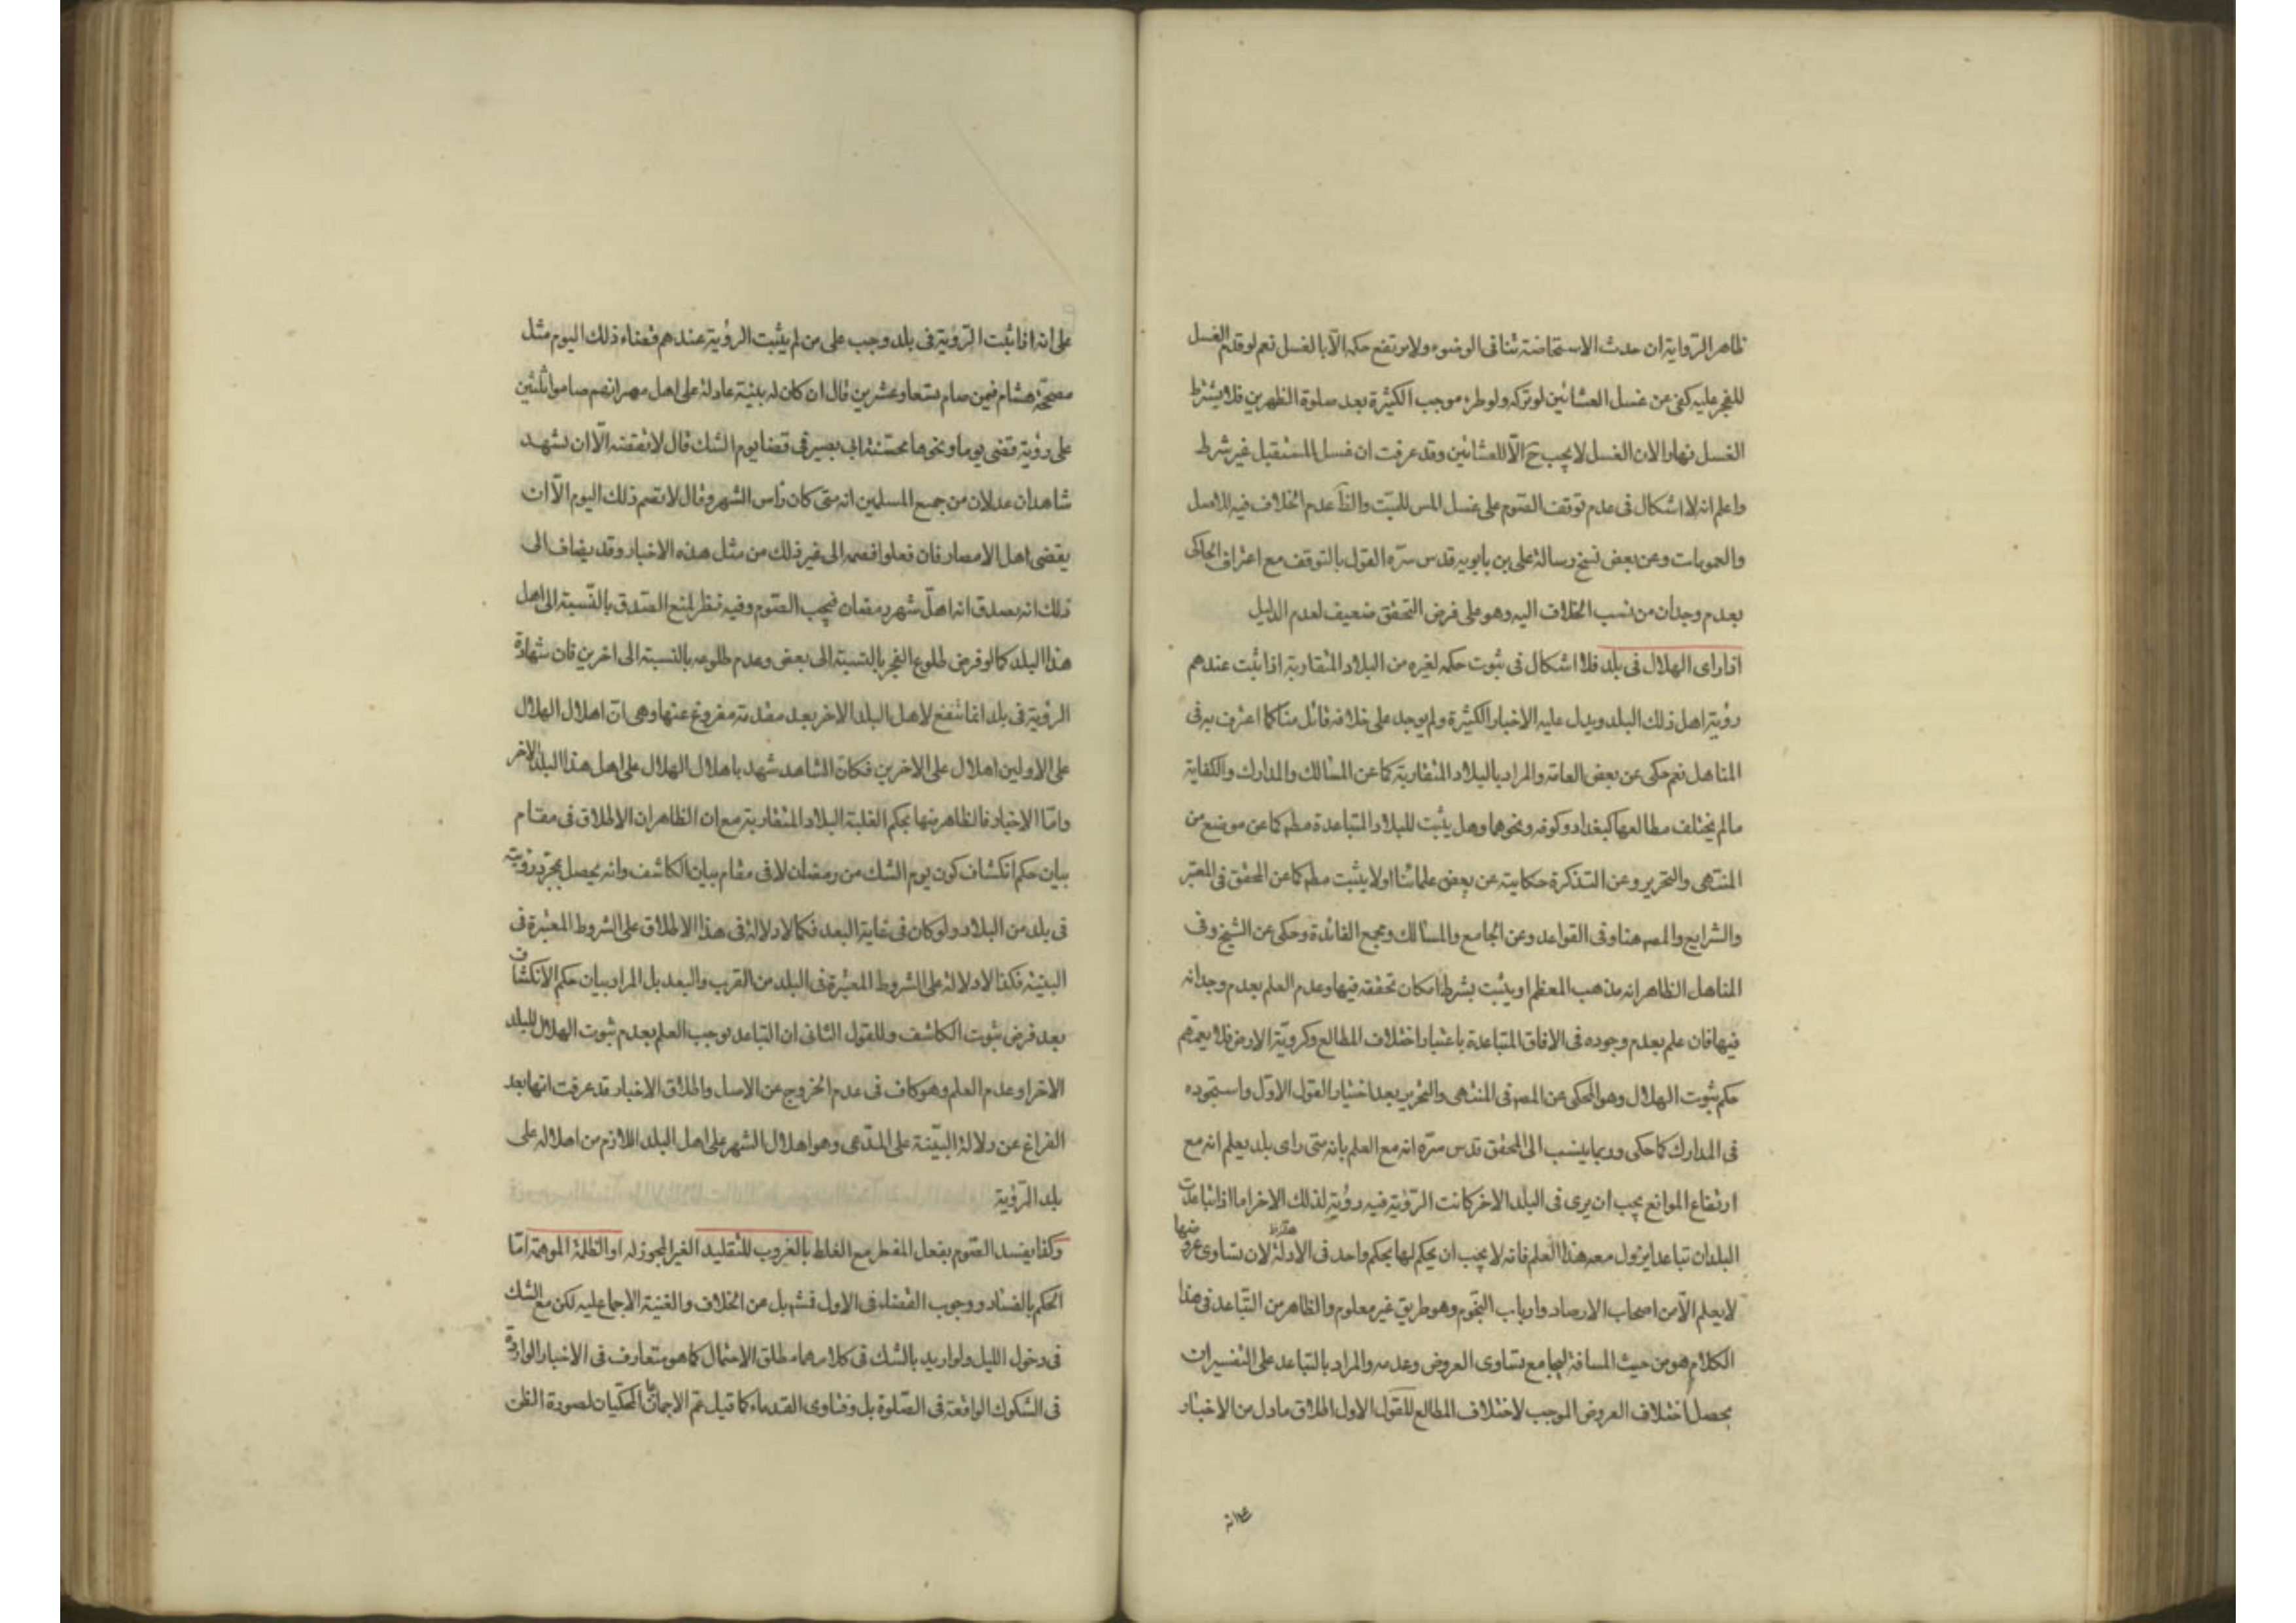 ظاهر الرواية ان حدث الاستحاضة تنافى الوضوء ولا يرتفع حكمه الّا بالغسل نعم لو قدم الغسل
للفجر عليه كفى عن غسل العشائين لو تركه ولو طرء موجب الكثيرة بعد صلوة الظهرين فلا يشترط
الغسل نهارا لان الغسل لا يجب ح الّا للعشائين وقد عرفت ان غسل المستقبل غير شرط
واعلم انه لا اشكال فى عدم توقف الصوم على غسل المس للميّت والظ عدم الخلاف فيه للاصل
والعمومات وعن بعض نسخ رسالة على بن بابويه قدس سرّه القول بالتوقف مع اعتراف الحاكى
بعدم وجدان من نسب الخلاف اليه وهو على فرض التحقق ضعيف لعدم الدليل
اذا راى الهلال فى بلد فلا اشكال فى ثبوت حكمه لغيره من البلاد المتقاربة اذا ثبت عندهم
رؤية اهل ذلك البلد ويدل عليه الاخبار الكثيرة ولم يوجد على خلافه قائل منّا كما اعترف به فى
المناهل نعم حكى عن بعض العامّة والمراد بالبلاد المتقاربة كما عن المسالك والمدارك والكفاية
ما لم يختلف مطالعها كبغداد وكوفه ونحوهما وهل يثبت للبلاد المتباعدة مطم كما عن موضع من
المنتهى والتحرير وعن التذكرة حكايته عن بعض علمائنا او لا يثبت مطم كما عن المحقق فى المعتبر
والشرايع والمصم هنا وفى القواعد وعن الجامع والمسالك ومجمع الفائدة وحكى عن الشيخ وفى
المناهل الظاهر انه مذهب المعظم او يثبت بشرط امكان تحققه فيها وعدم العلم بعدم وجدانه
فيها فان علم بعدم وجوده فى الافاق المتباعدة باعتبار اختلاف المطالع وكرويّة الارض فلا يعمّهم
حكم ثبوت الهلال وهو المحكى عن المصم فى المنتهى والتحرير بعد اختيار القول الاوّل واستجوده
فى المدارك كما حكى وربما ينسب الى المحقق قدس سرّه انه مع العلم بانه متى راى بلد يعلم انه مع
ارتفاع الموانع يجب ان يرى فى البلد الاخر كانت الرّؤية فيه رؤية لذلك الاخر اما اذا تباعدت
البلدان تباعدا يزول معه هذا العلم فانه لا يجب ان يحكم لها بحكم واحد فى الادلة لان تساوى عروضها
لا يعلم الّا من اصحاب الارصاد وارباب النجوم وهو طريق غير معلوم والظاهر من التّباعد فى هذا
الكلام هو من حيث المسافة ليجامع تساوى العروض وعدمه والمراد بالتباعد على التفسير ان
يحصل اختلاف العروض الموجب لاختلاف المطالع للقول الاول اطلاق ما دل من الاخبار
على انه اذا ثبت الرّؤية فى بلد وجب على من لم يثبت الرؤية عندهم قضاء ذلك اليوم مثل
مصحّحة هشام فيمن صام تسعا وعشرين قال ان كان له بيّنة عادلة على اهل مصر انهم صاموا ثلثين
على رؤية قضى يوما ونحوها محسّنة ابى بصير فى قضا يوم الشك قال لا تقضه الّا ان تشهد
شاهدان عدلان من جميع المسلمين انه متى كان رأس الشهر وقال لا تصم ذلك اليوم الّا ان
يقضى اهل الامصار فان فعلوا فصمه الى غير ذلك من مثل هذه الاخبار وقد يضاف الى
ذلك انه يصدق انه اهلّ شهر رمضان فيجب الصّوم وفيه نظر لمنع الصّدق بالنّسبة الى اهل
هذا البلد كما لو فرض طلوع الفجر بالنّسبة الى بعض وعدم طلوعه بالنسبة الى اخرين فان شهادة
الرؤية فى بلد انما تنفع لاهل البلد الاخر بعد مقدمة مفروغ عنها وهى انّ اهلال الهلال
على الاولين اهلال على الاخرين فكان الشاهد شهد باهلال الهلال على اهل هذا البلد الاخر
وامّا الاخبار فالظاهر منها بحكم الغلبة البلاد المتقاربة مع ان الظاهر ان الاطلاق فى مقام
بيان حكم انكشاف كون يوم الشك من رمضان لا فى مقام بيان الكاشف وانه يحصل بمجرّد رؤيته
فى بلد من البلاد ولو كان فى غاية البعد فكما لا دلالة فى هذا الاطلاق على الشروط المعتبرة فى
البيّنه فكذا لا دلالة على الشروط المعتبرة فى البلد من القرب والبعد بل المراد بيان حكم الانكشاف
بعد فرض ثبوت الكاشف وللقول الثانى ان التباعد يوجب العلم بعدم ثبوت الهلال للبلد
الاخر او عدم العلم وهو كاف فى عدم الخروج عن الاصل واطلاق الاخبار قد عرفت انها بعد
الفراغ عن دلالة البيّنة على المدّعى وهو اهلال الشهر على اهل البلد اللازم من اهلاله على
بلد الرّؤية
وكذا يفسد الصّوم بفعل المفطر مع الغلط بالغروب للتقليد الغير المجوز له او الظلمة الموهمة امّا
الحكم بالفساد ووجوب القضاء فى الاول فشم بل عن الخلاف والغنية الاجماع عليه لكن مع الشك
فى دخول الليل ولو اريد بالشك فى كلامهما مطلق الاحتمال كما هو متعارف فى الاخبار الواردة
فى الشكوك الواقعة فى الصّلوة بل وفتاوى القدماء كما قيل عمّ الاجماعان المحكيّان لصورة الظن